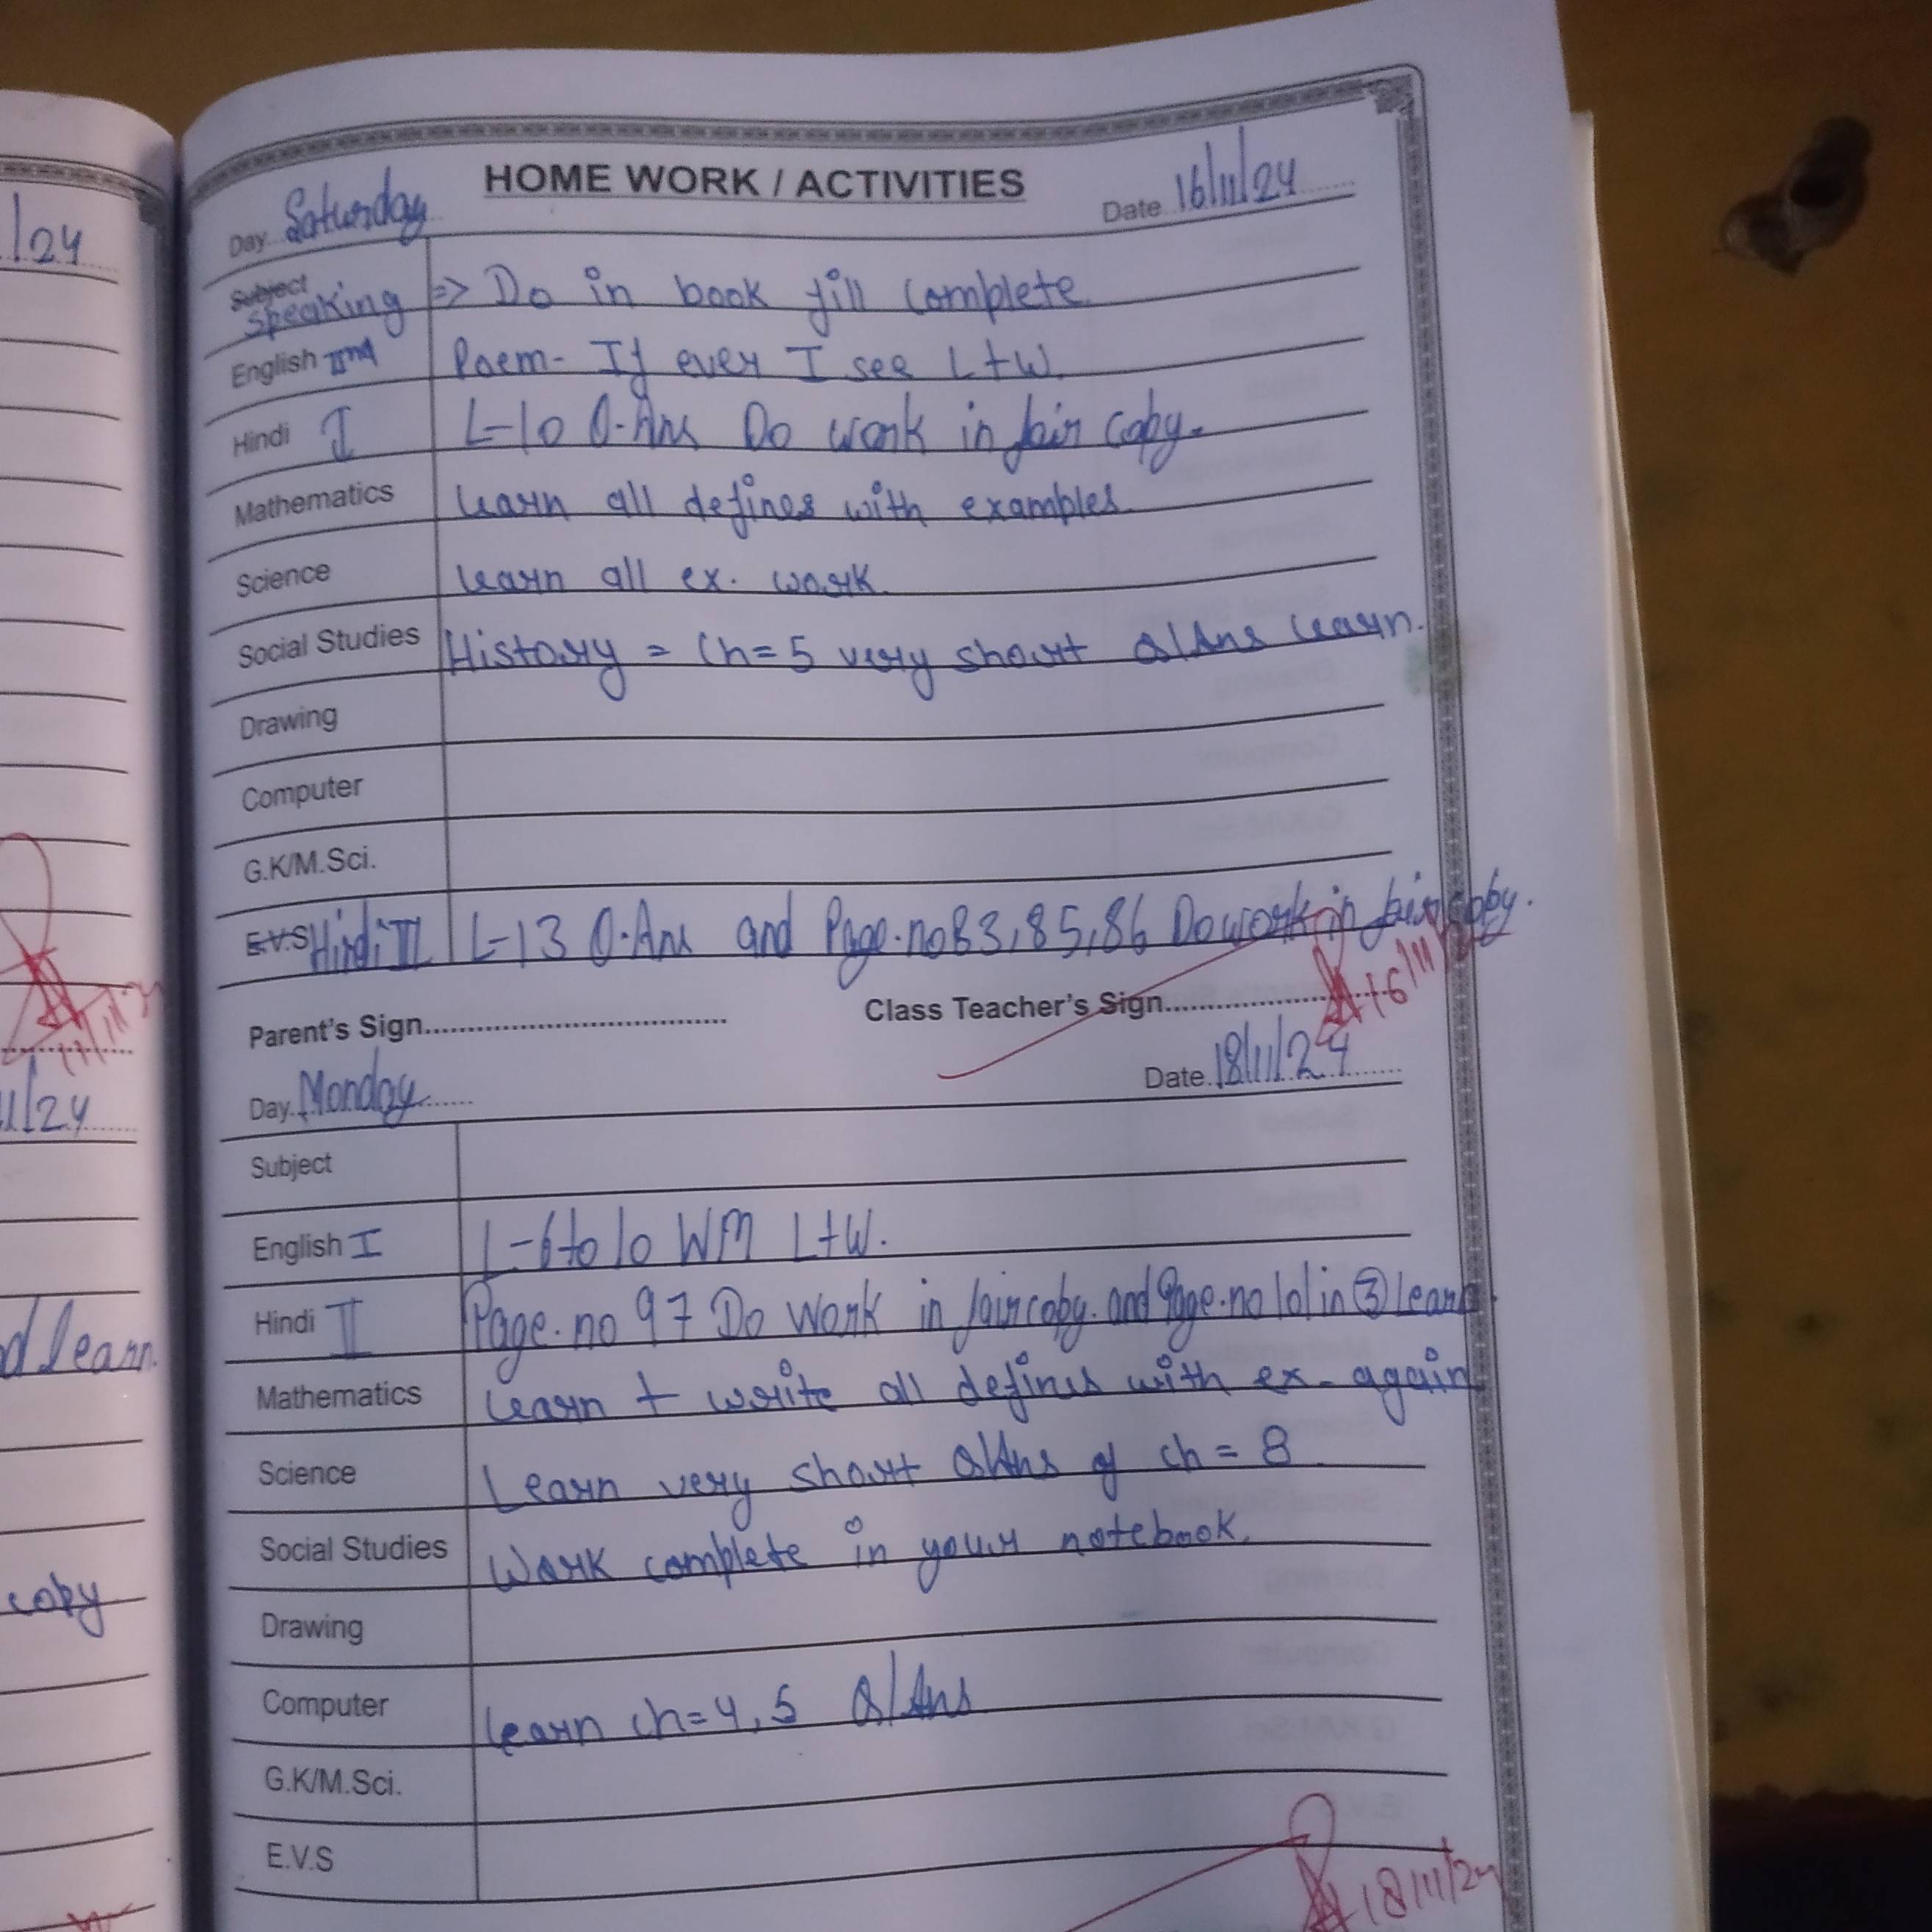 HOME WORK / ACTIVITIES
Day Saturday Date 16/11/24
Subject
Speaking => Do in book fill complete.
English IInd Poem- If ever I see L+W.
Hindi I L-10 Q.Ans Do work in fair copy.
Mathematics Learn all defines with examples.
Science Learn all ex. work.
Social Studies History = Ch=5 very short Q/Ans learn.
Drawing
Computer
G.K/M.Sci.
E.V.S Hindi II L-13 Q.Ans and Page.no 83,85,86 Do work in fair copy.
Parent's Sign Class Teacher's Sign 16/11
Day Monday Date 18/11/24
Subject
English I L-6 to 10 WM L+W.
Hindi II Page.no 97 Do Work in fair copy. and Page.no 101 in 3 Learn.
Mathematics Learn + write all defines with ex- again
Science Learn very short Q/Ans of ch = 8
Social Studies Work complete in your notebook.
Drawing
Computer Learn ch=4,5 Q/Ans
G.K/M.Sci.
E.V.S
18/11/24
/24
11/11/2
1/24
d learn.
copy